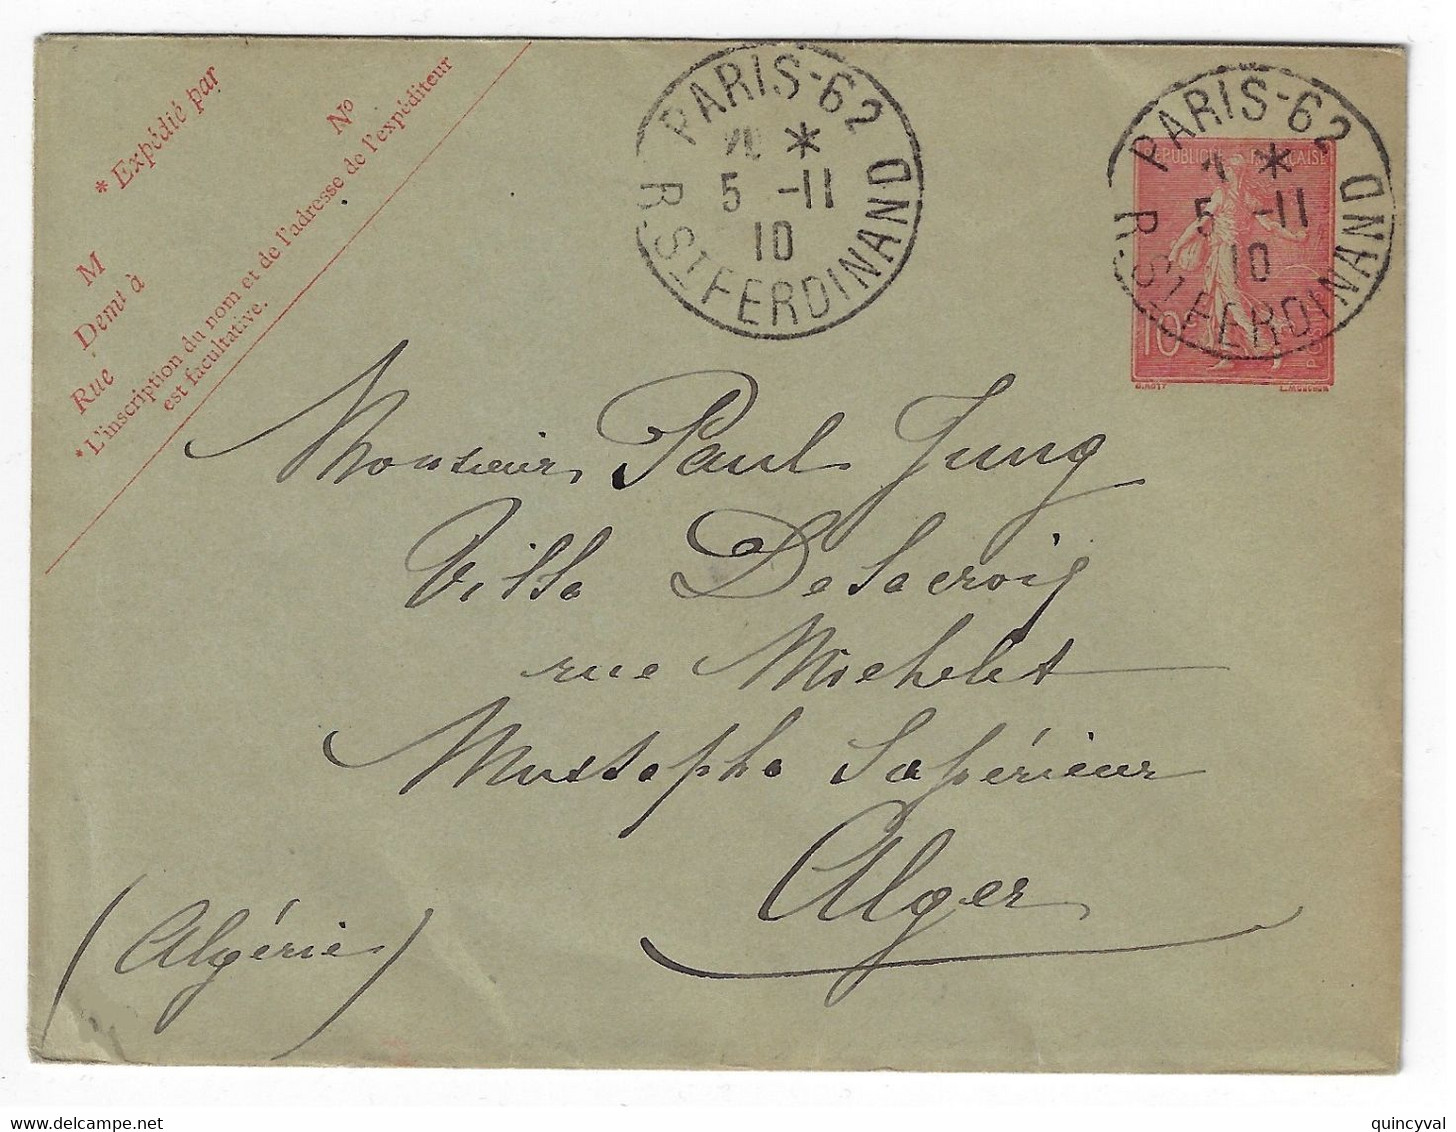 * Expédié par
N°
M
Demt à
Rue
* L'inscription du nom et de l'adresse de l'expéditeur
est facultative.
PARIS-62
*
5 -11
10
R. ST FERDINAND
PARIS-62
*
5 -11
10
R. ST FERDINAND
REPUBLIQUE FRANÇAISE
10c
O. ROTY
L. MOUCHON
Monsieur Paul Jung
Villa Delacroix
rue Michelet
Mustapha Supérieur
Alger
(Algérie)
quincyval